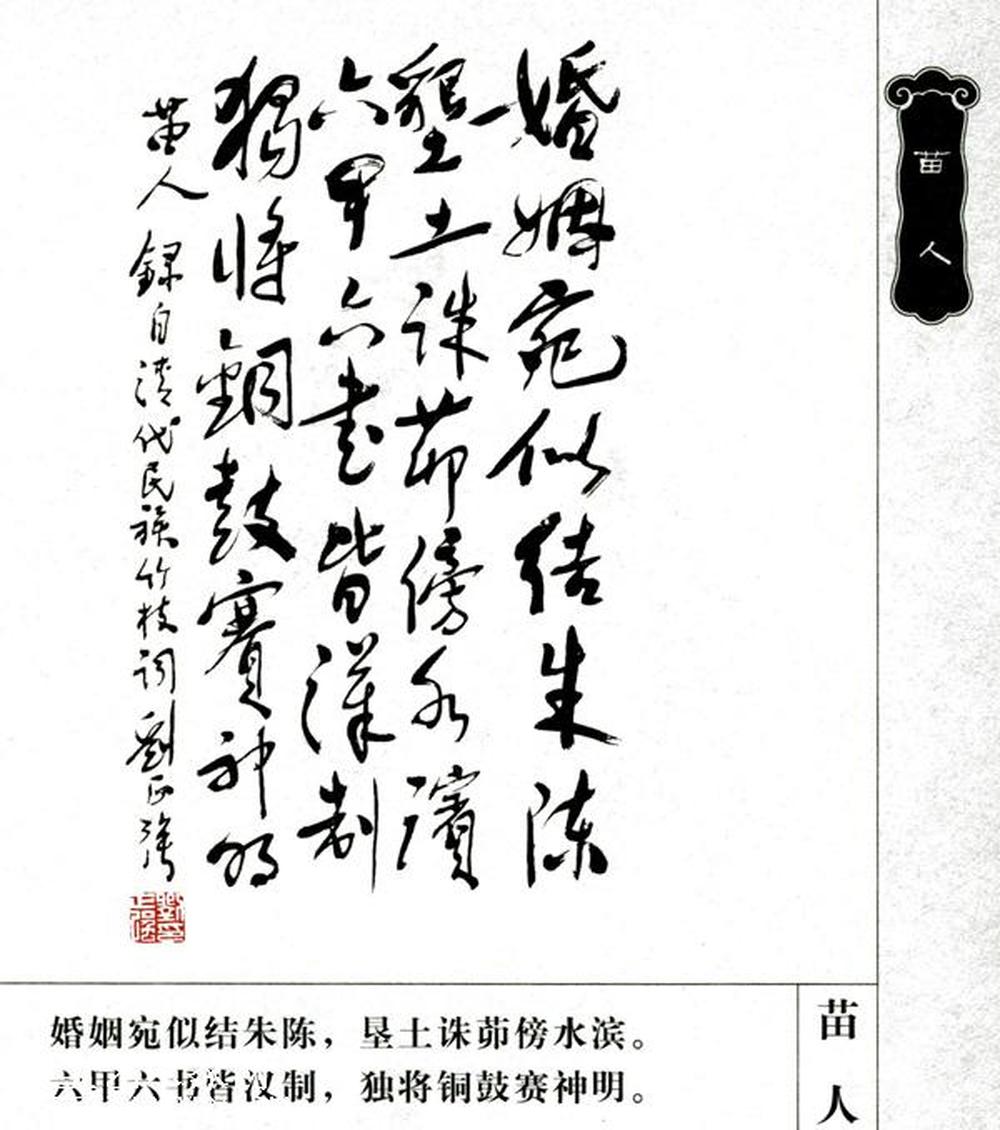 婚姻宛似结朱陈
墾土诛茆傍水濱
六甲六書皆漢制
獨將銅鼓賽神明
苗人 録自清代民族竹枝词 劉正強
苗人
婚姻宛似结朱陈，垦土诛茆傍水滨。
六甲六书皆汉制，独将铜鼓赛神明。
苗人